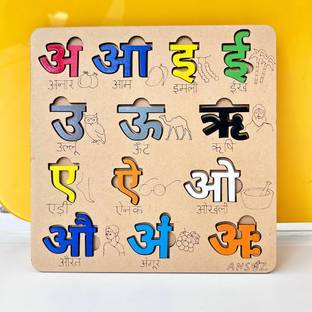 अ आ इ ई
अनार आम इमली ईख
उ ऊ ऋ
उल्लू ऊँट ऋषि
ए ऐ ओ
एड़ी ऐनक ओखली
औ अं अः
औरत अंगूर